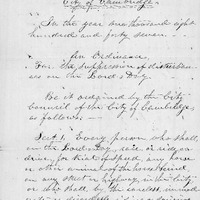 City of Cambridge
In the year one thousand eight
hundred and forty seven
An Ordinance
For the suppression of disturban
ces on the Lord's Day.
Be it ordained by the City
Council of the City of Cambridge
as follows
Sect 1. Every person who shall,
on the Lord's Day, race or ride or
drive, for trial of speed, any horse
or other animal of the horse kind,
on any street or highway in the City,
or who shall by